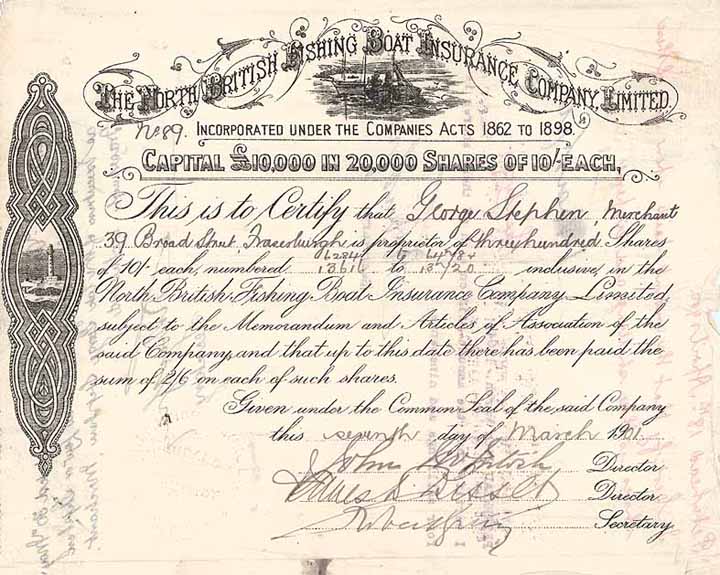 THE NORTH BRITISH FISHING BOAT INSURANCE COMPANY, LIMITED.
No. 89. INCORPORATED UNDER THE COMPANIES ACTS 1862 TO 1898.
CAPITAL £10,000 IN 20,000 SHARES OF 10/- EACH,
This is to Certify that George Stephen, Merchant
39 Broad Street, Fraserburgh is proprietor of three hundred Shares
of 10/- each, numbered 13616 to 13720 inclusive, in the
North British Fishing Boat Insurance Company Limited,
subject to the Memorandum and Articles of Association of the
said Company, and that up to this date there has been paid the
sum of 2/6 on each of such shares.
Given under the Common Seal of the said Company
this seventh day of March 1901.
John Director
James Director
Secretary